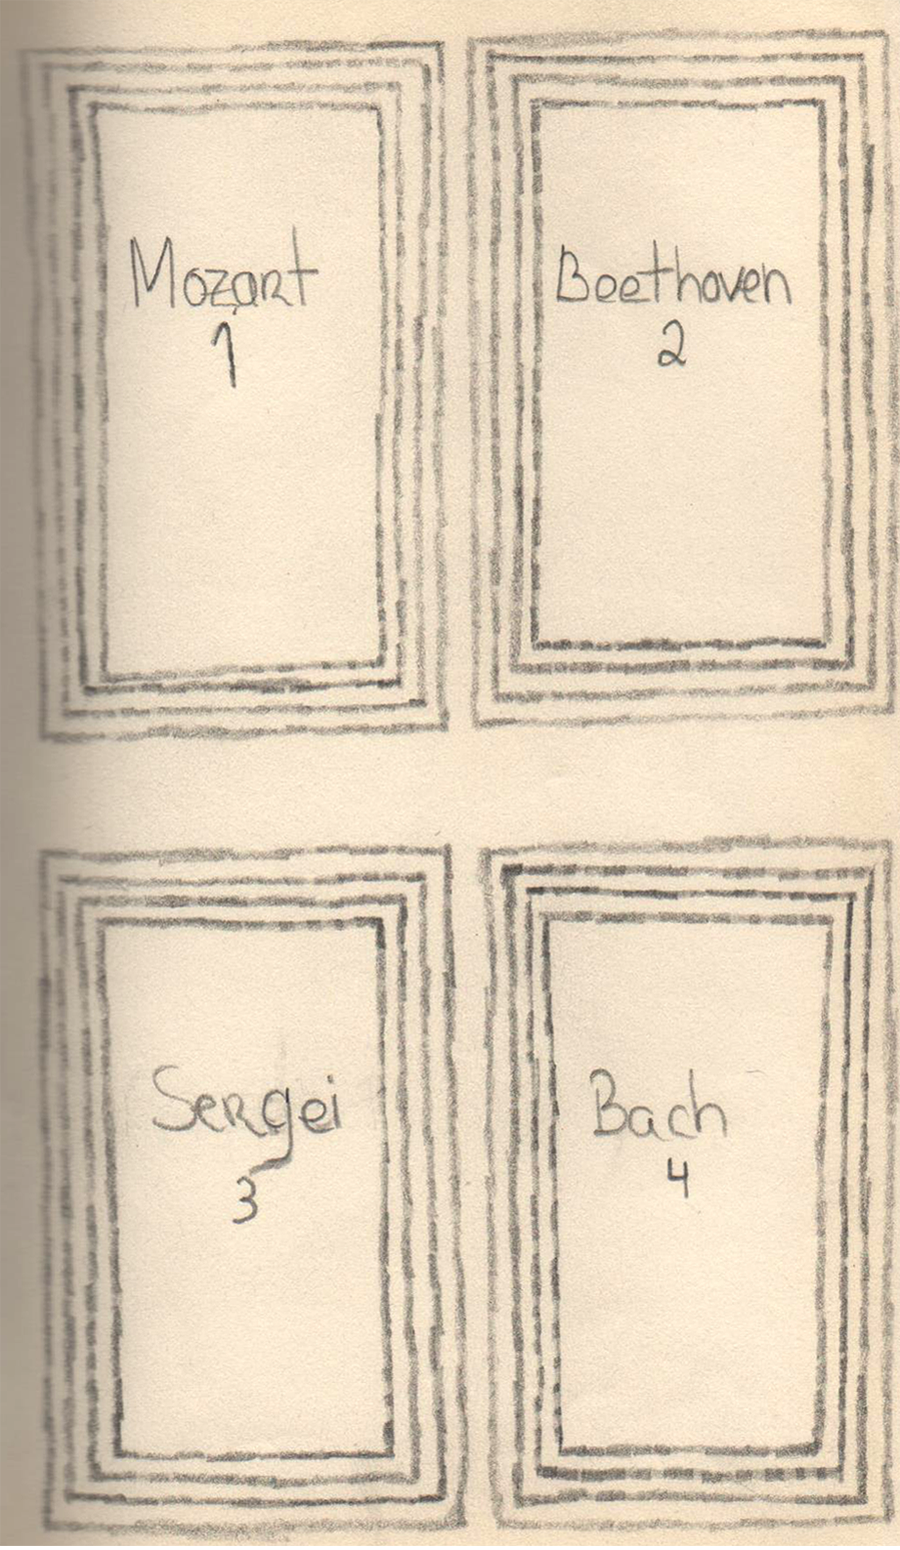 Mozart
1
Beethoven
2
Sergei
3
Bach
4